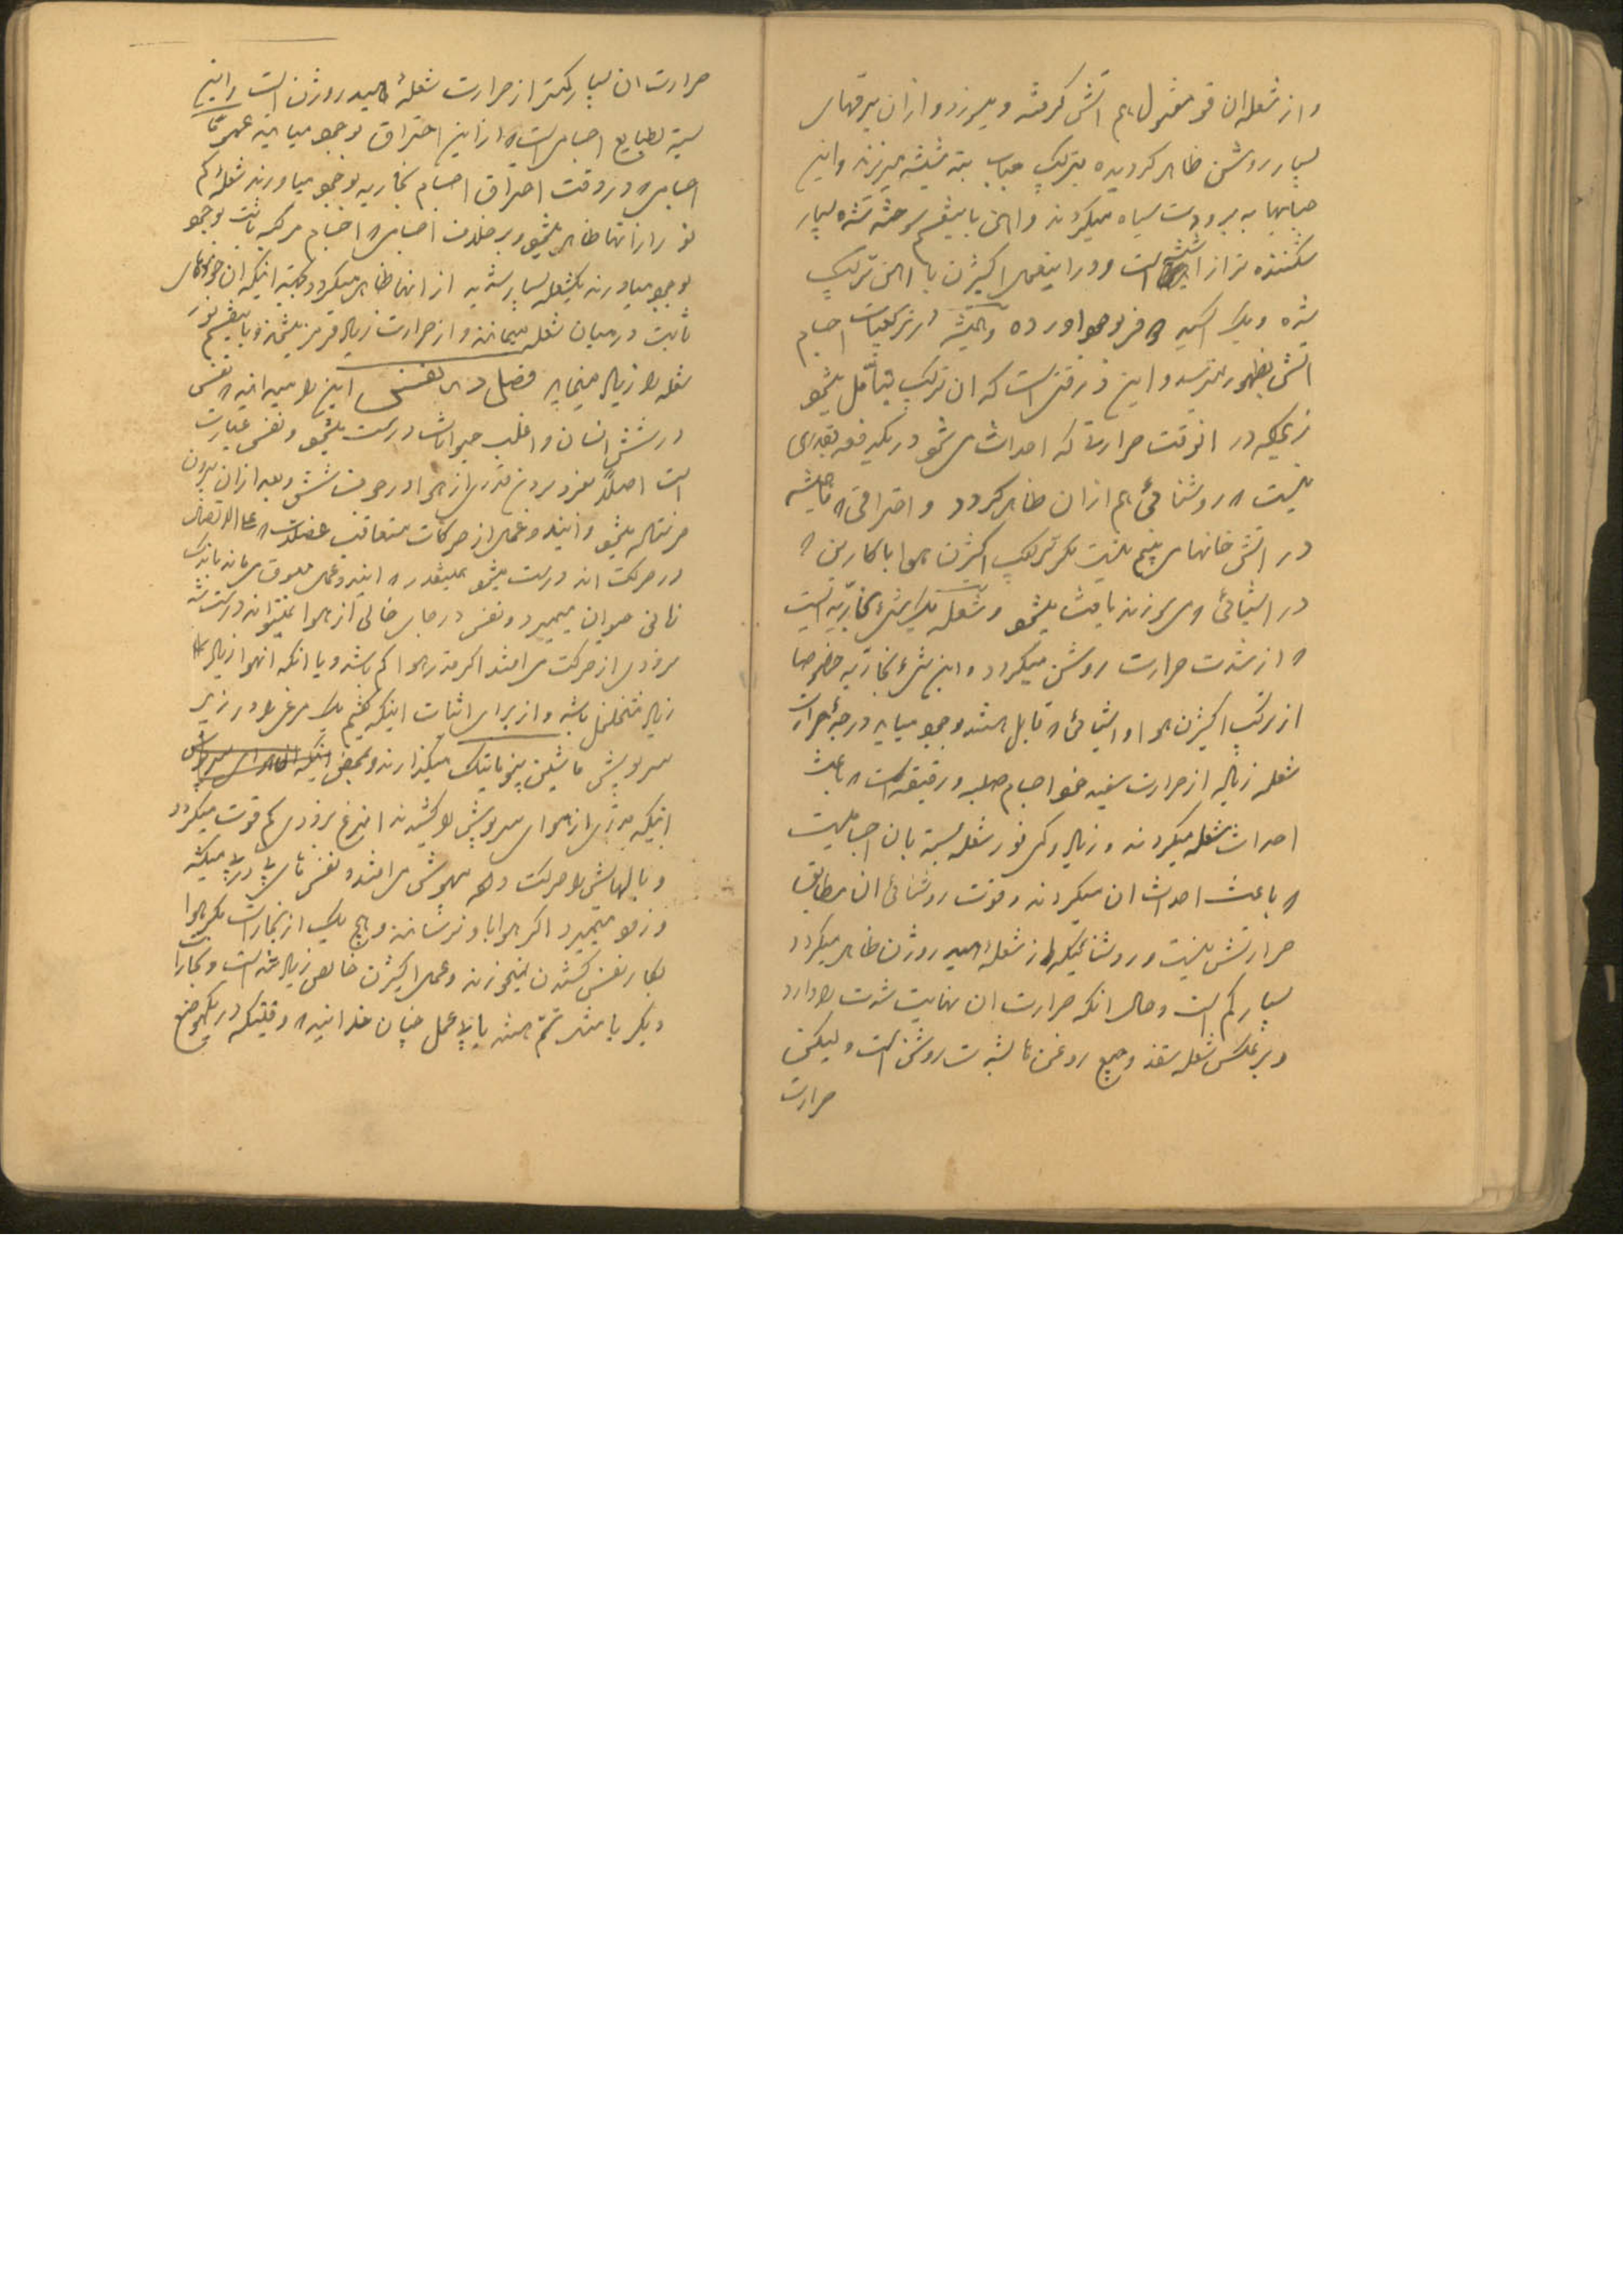 و از شعله ان قو مفتول هم اتش کرفته و میسوزد و از ان برقهای
بسیار روشن ظاهر کردیده بترکیب حباب بته شیشه میریزند و این
حبابها به برودت سیاه میکردند و اهن باینقسم سوخته شده بسیار
شکننده تر از است و در اینعمل اکیژن با اهن ترکیب
شده و یک اکسید فر بوجود اورده و همیشه در ترکیبات اجسام
اتش بظهور میرسد و این در وقتی است که ان ترکیب بتأمل میشود
زیرا که در انوقت حرارتی که احداث می شود در یکدفعه بقدری
نیست که روشنائی هم از ان ظاهر کردد و احتراقی که همیشه
در اتش خانهای میبینیم نیست مکر ترکیب اکیژن هوا با کاربن
در اشیائی که می سوزند باعث میشود و شعله یک شیء بخاریه ایست
که از شدت حرارت روشن میکردد و این شیء بخاریه خصوصا
از ترکیب اکیژن هوا و اشیائی که قابل هستند بوجود میاید درجهٔ حرارت
شعله زیاده از حرارت سفید خود اجسام صلبه و رقیقه است که باعث
احداث شعله میکردند و زیاد و کمی نور شعله بسته بان اجسامیست
که باعث احداث ان میکردند و قوت روشنائی ان مطابق
حرارتش نیست و روشنائیکه از شعلهٔ هیدروژن ظاهر میکردد
بسیار کم است و حال انکه حرارت ان نهایت شدت را دارد
و بر عکس شعله سفز و جمیع روغن ها بشدت روشن است و لیکن
حرارت
حرارت ان بسیار کمتر از حرارت شعلهٔ هیدروژن است و این
بسته بطبایع اجسامی است که از این احتراق بوجود میاید عموما
اجسامی که در وقت احتراق اجسام بخاریه بوجود میاورند شعلهٔ کم
نور از انها ظاهر میشود و بر خلاف اجسامی که اجسام مرکبه ثابت بوجود
بوجود میاورند یکشعله بسیار شدید از انها ظاهر میکردد بجهته اینکه ان جزءهای
ثابت در میان شعله میمانند و از حرارت زیاد قرمز میشوند و باینقسم نور
شعله را زیاد مینماید فصل در تنفس این را میدانید که تنفس
در شش انسان و اغلب حیوانات درست میشود و تنفس عبارت
است اصلاً بفرو بردن قدری از هوا در جوف شش و بعد از ان بیرون
فرستاده میشود و ایندو عمل از حرکات متعاقب عضلات که علی الاتصال
در حرکت اند درست میشود همینقدر که ایندو عمل معوق می ماند باندک
زمانی حیوان میمیرد و تنفس در جای خالی از هوا نمیتواند درست شد
بزودی از حرکت می افتد اکر قدر هوا کم باشد و یا انکه انهوا زیاده
زیاد متخلخل باشد و از برای اثبات اینکه کفتیم یک مرغی را در زیر
سرپوش ماشین پنوماتیک میکذارند و بمحض
اینکه قدری از هوای سرپوش را کشیدند انمرغ بزودی کم قوت میکردد
و بالهایش را حرکت داده بیهوش می افتد و نفس های پی در پی میکشد
و زود میمیرد اکر هوا باو نرسانند و هیچ یک از بخارات بغیر هوا
بکار نفس کشیدن نمیخورند و عمل اکیژن خالص زیاد تند است و بخارات
دیکر یا مثل سم هستند یا بی عمل چنان غذائیند که وقتیکه در یکموضع